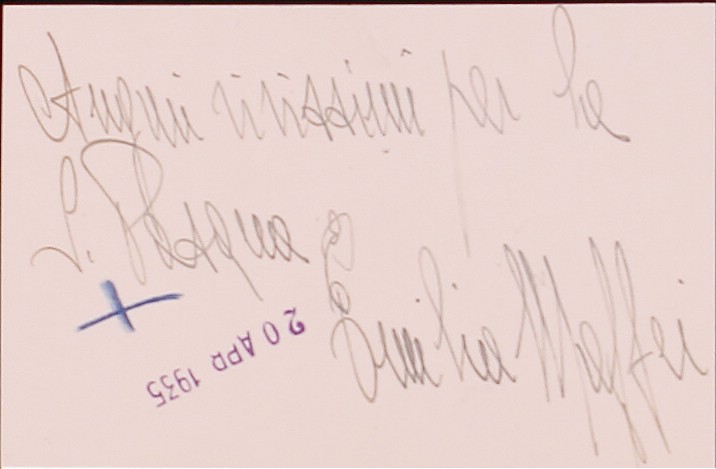 Auguri vivissimi per la
S. Pasqua
Emilia Maffei
20 APR 1935